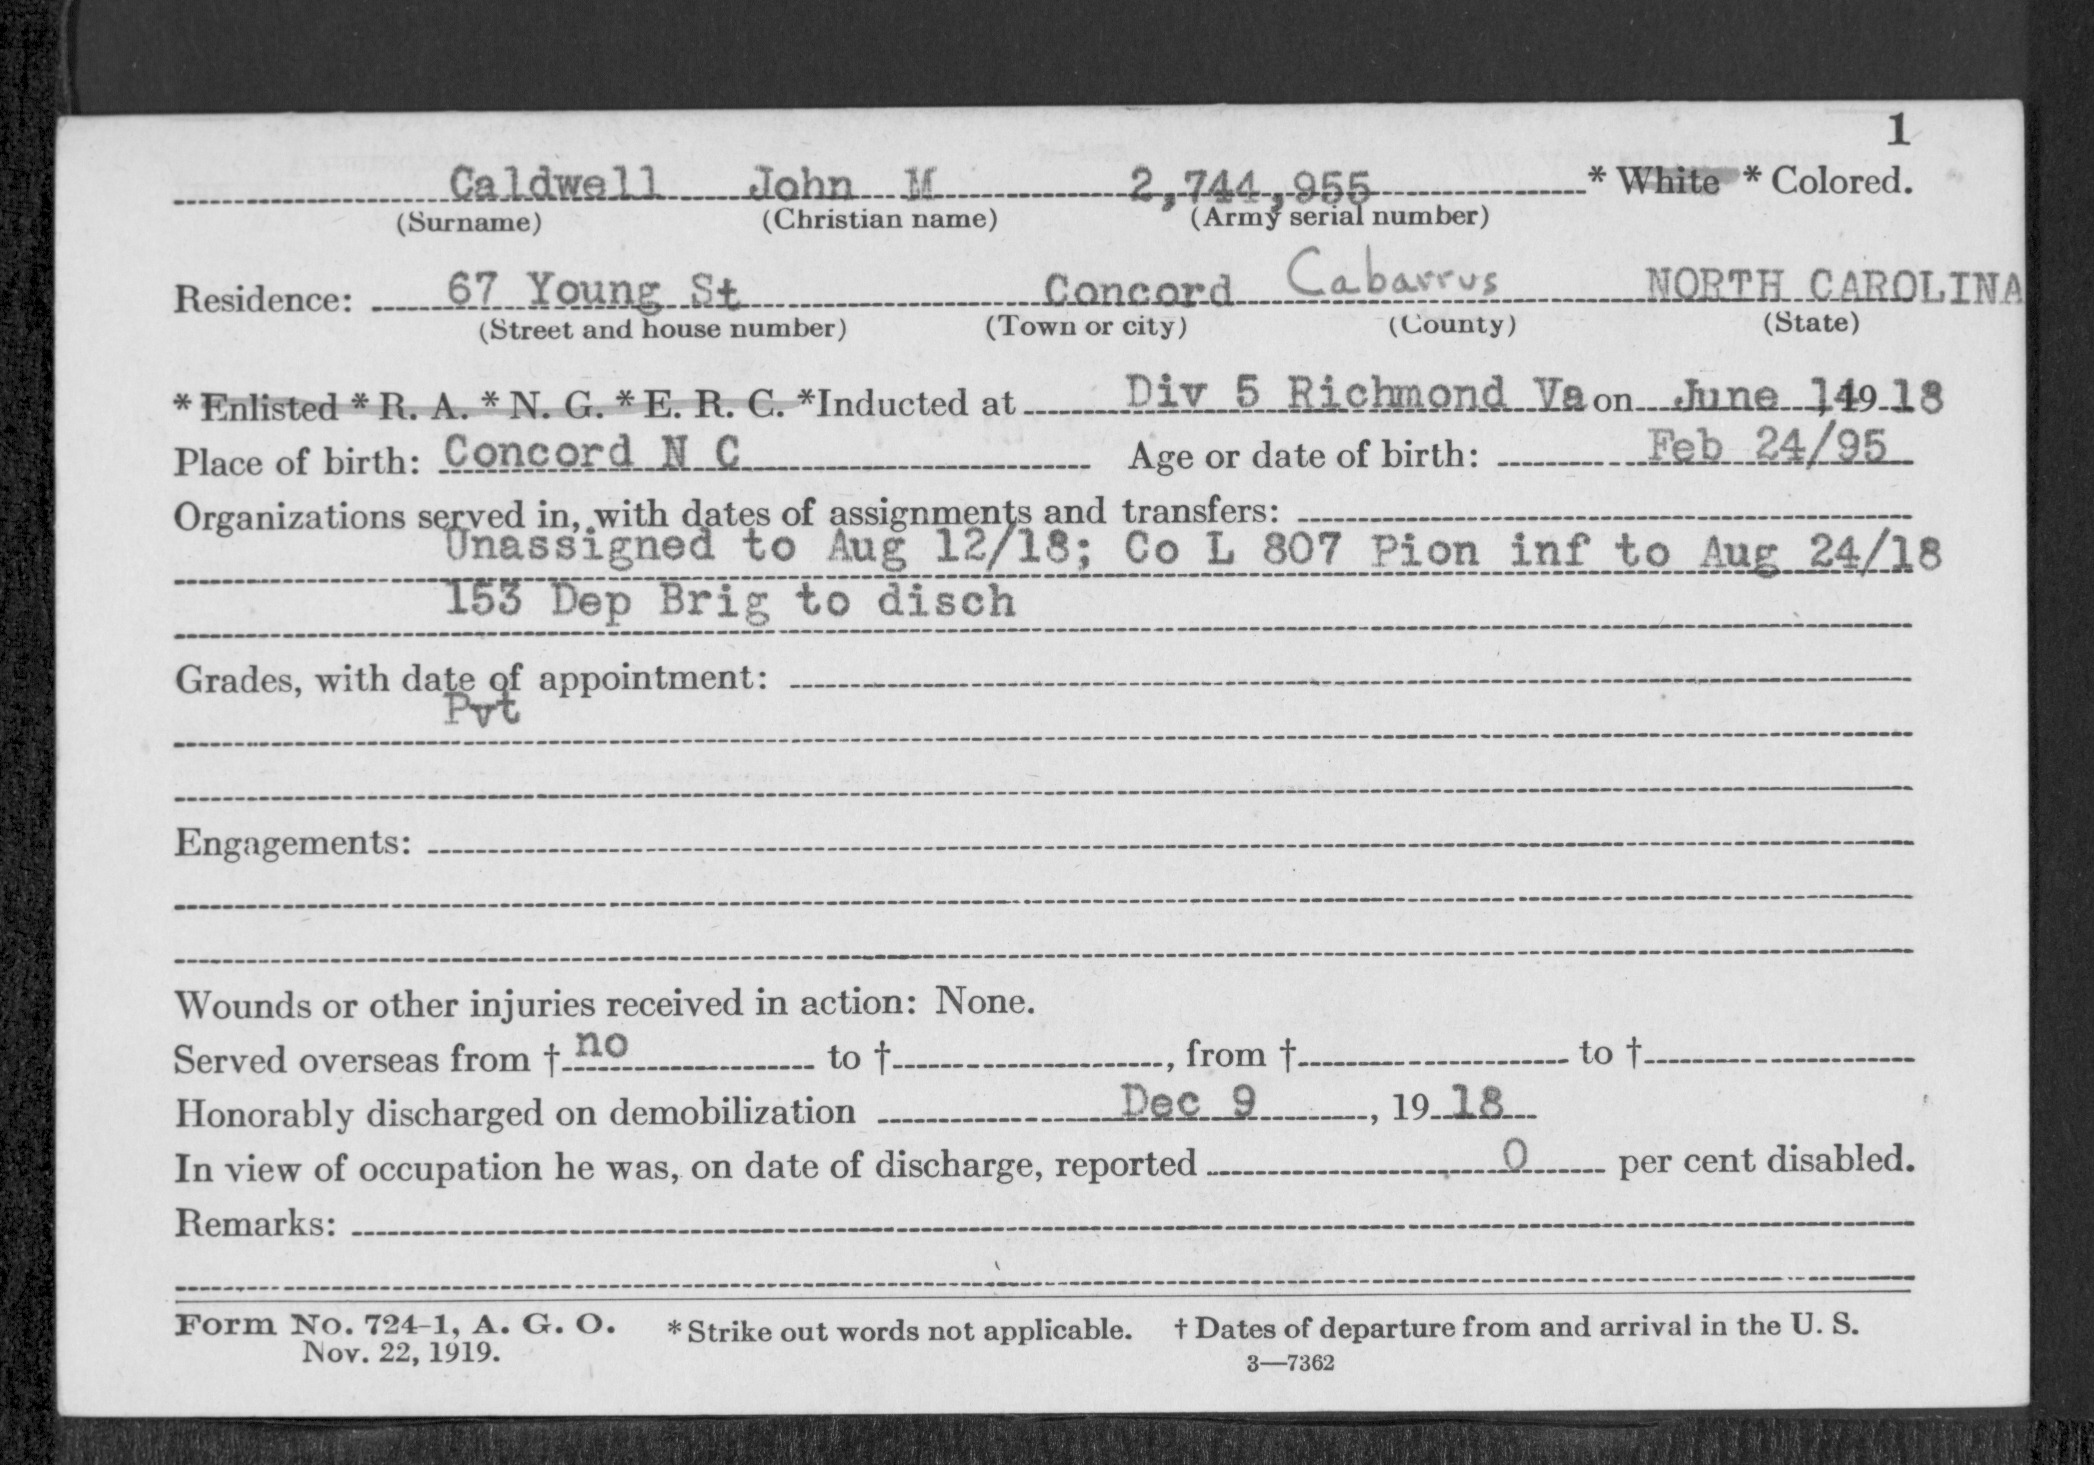 1
Caldwell John M 2,744,955 * White * Colored.
(Surname) (Christian name) (Army serial number)
Residence: 67 Young St Concord Cabarrus NORTH CAROLINA
(Street and house number) (Town or city) (County) (State)
* Enlisted * R. A. * N. G. * E. R. C. *Inducted at Div 5 Richmond Va on June 14, 1918
Place of birth: Concord N C Age or date of birth: Feb 24/95
Organizations served in, with dates of assignments and transfers:
Unassigned to Aug 12/18; Co L 807 Pion inf to Aug 24/18
153 Dep Brig to disch
Grades, with date of appointment:
Pvt
Engagements:
Wounds or other injuries received in action: None.
Served overseas from † no to †, from † to †
Honorably discharged on demobilization Dec 9, 19 18
In view of occupation he was, on date of discharge, reported 0 per cent disabled.
Remarks:
Form No. 724-1, A. G. O. * Strike out words not applicable. † Dates of departure from and arrival in the U. S.
Nov. 22, 1919. 3—7362